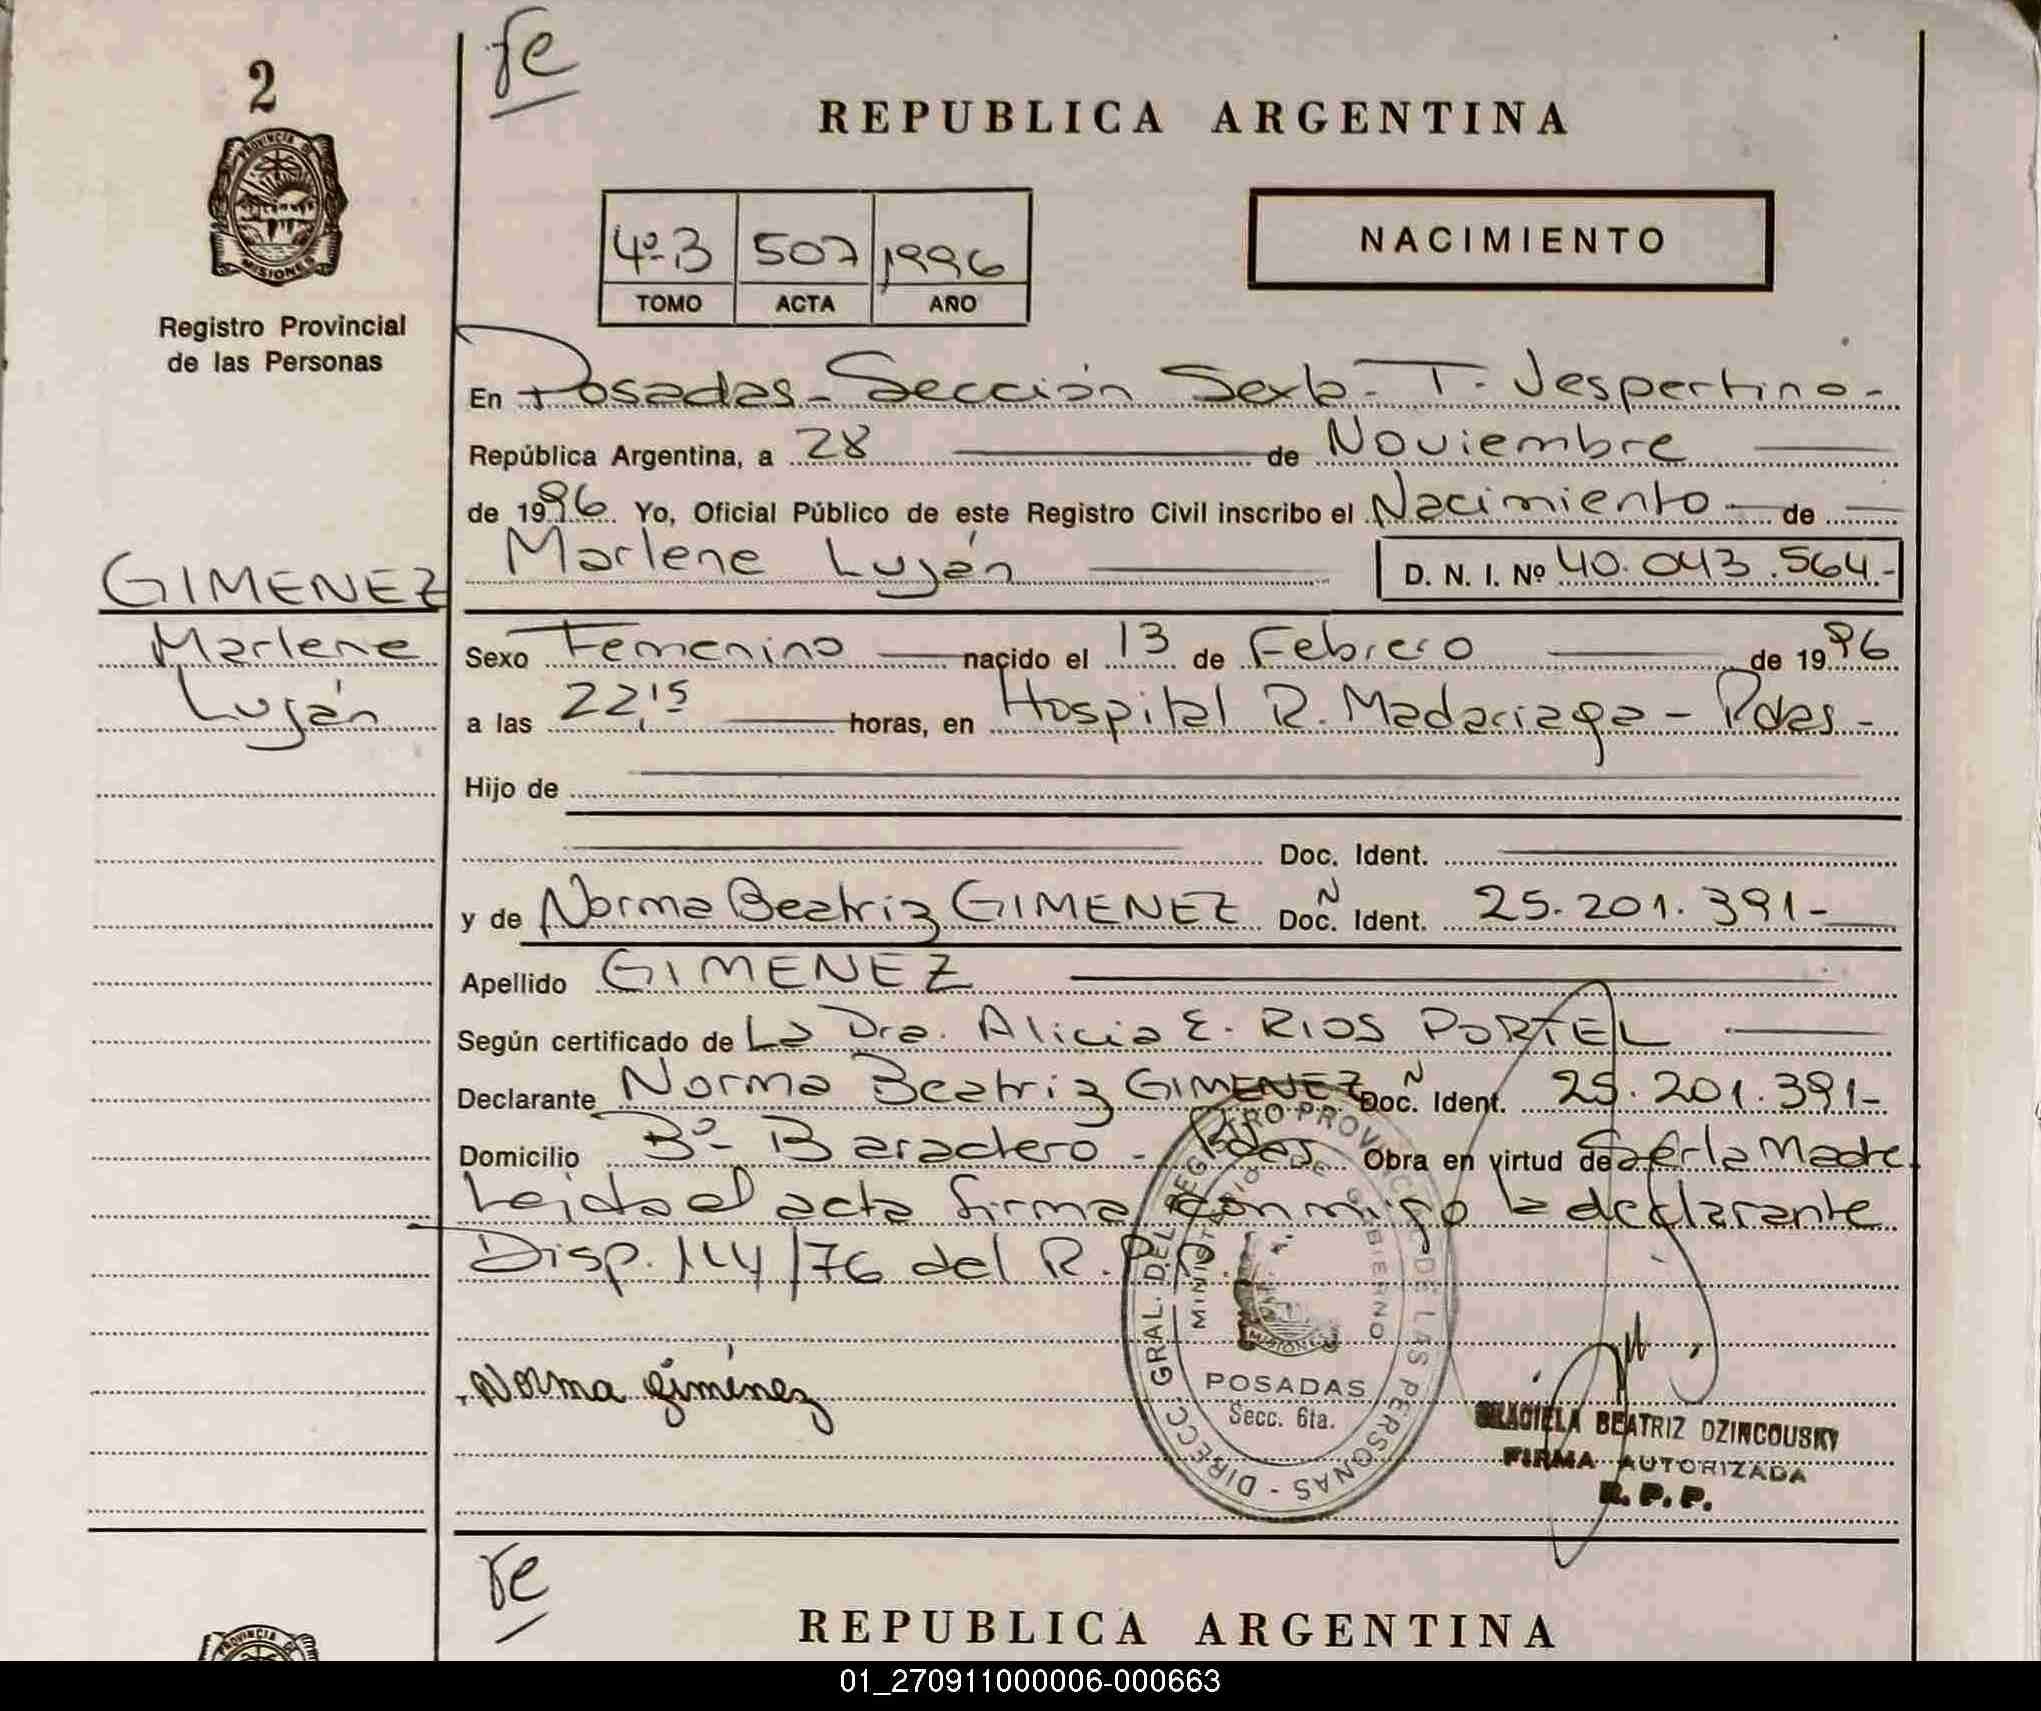 2
fe
REPUBLICA ARGENTINA
PROVINCIA DE
MISIONES
4º-B 507 1996
TOMO ACTA AÑO
NACIMIENTO
Registro Provincial
de las Personas
En Posadas - Sección Sexta - T. Vespertino -
República Argentina, a 28 de Noviembre
de 1996 Yo, Oficial Público de este Registro Civil inscribo el Nacimiento de
Marlene Luján D. N. I. Nº 40.043.564.-
GIMENEZ
Marlene
Luján
Sexo Femenino nacido el 13 de Febrero de 1996
a las 22,15 horas, en Hospital R. Madariaga - Pdas -
Hijo de
Doc. Ident.
y de Norma Beatriz GIMENEZ Doc. N Ident. 25.201.391-
Apellido GIMENEZ
Según certificado de La Dra. Alicia E. RIOS PORTEL
Declarante Norma Beatriz GIMENEZ Doc. N Ident. 25.201.391-
Domicilio Bº- Baradero - Pdas Obra en virtud de Ser la Madre
Leida el acta firma conmigo la declarante
Disp. 144/76 del R.P.P.
Norma Giménez
DIRECC. GRAL. DEL REGISTRO PROVINCIAL DE LAS PERSONAS -
MINISTERIO DE GOBIERNO
MISIONES
POSADAS
Secc. 6ta.
GRACIELA BEATRIZ DZINCOUSKY
FIRMA AUTORIZADA
R. P. P.
fe
REPUBLICA ARGENTINA
PROVINCIA DE
01_270911000006-000663